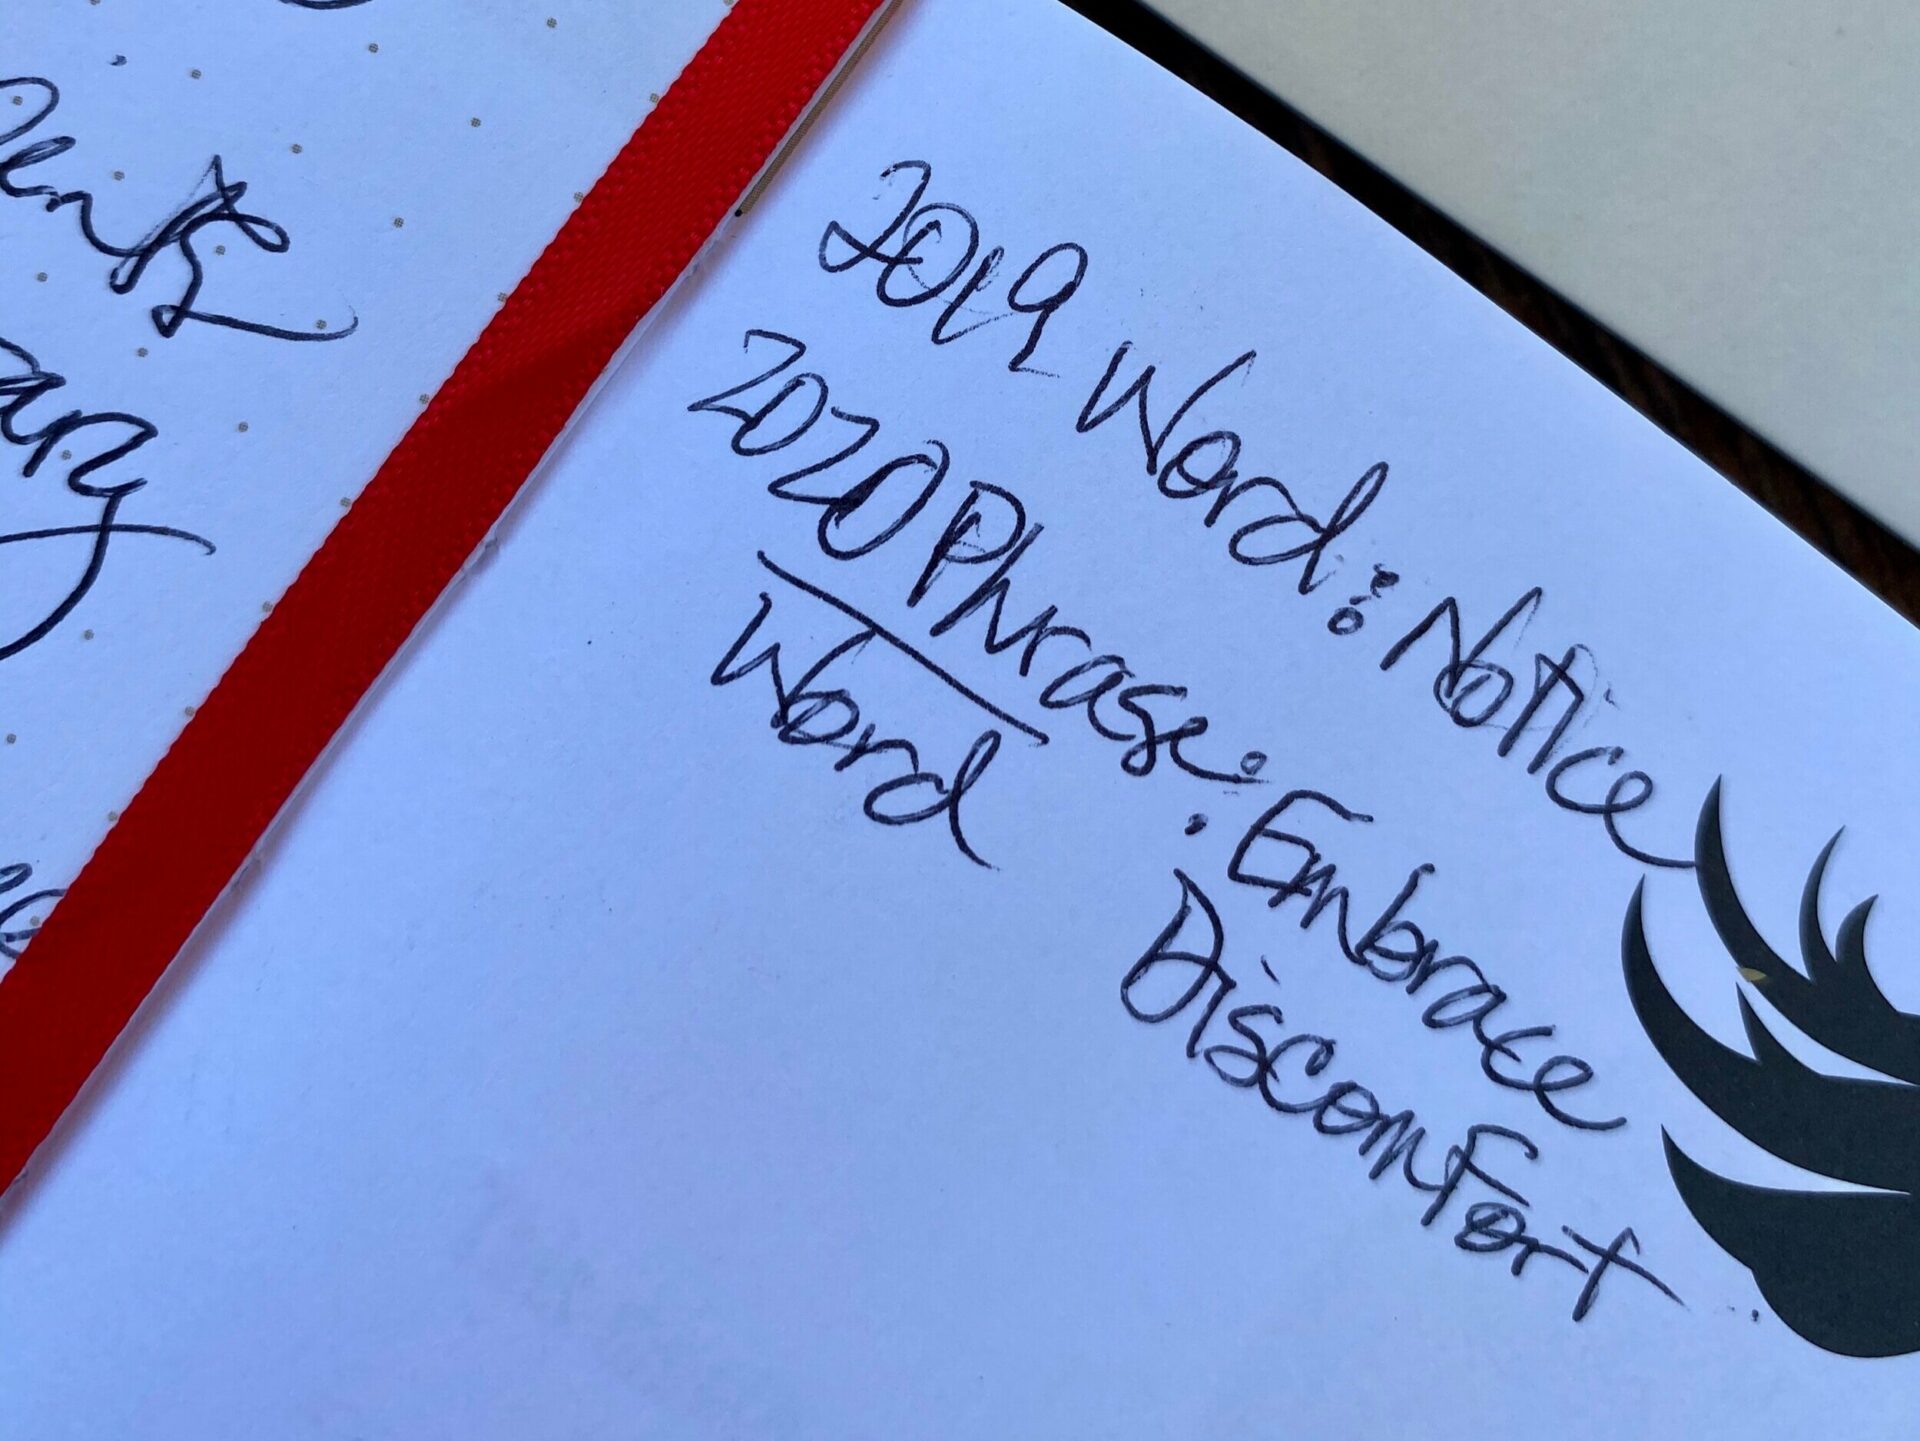 2019 Word: Notice
2020 Phrase: Embrace
Word Discomfort